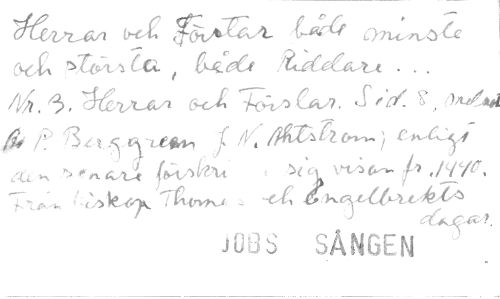 Herrar och Förstar både minste
och största, både Riddare...
Nr. 3. Herrar och Förslar. Sid. 8,
P. Berggreen J. N. Ahlstrom; enligt
den senare förskri sig visan fr. 1440.
Från biskop Thomas och Engelbrekts
dagar.
JOBS SÅNGEN